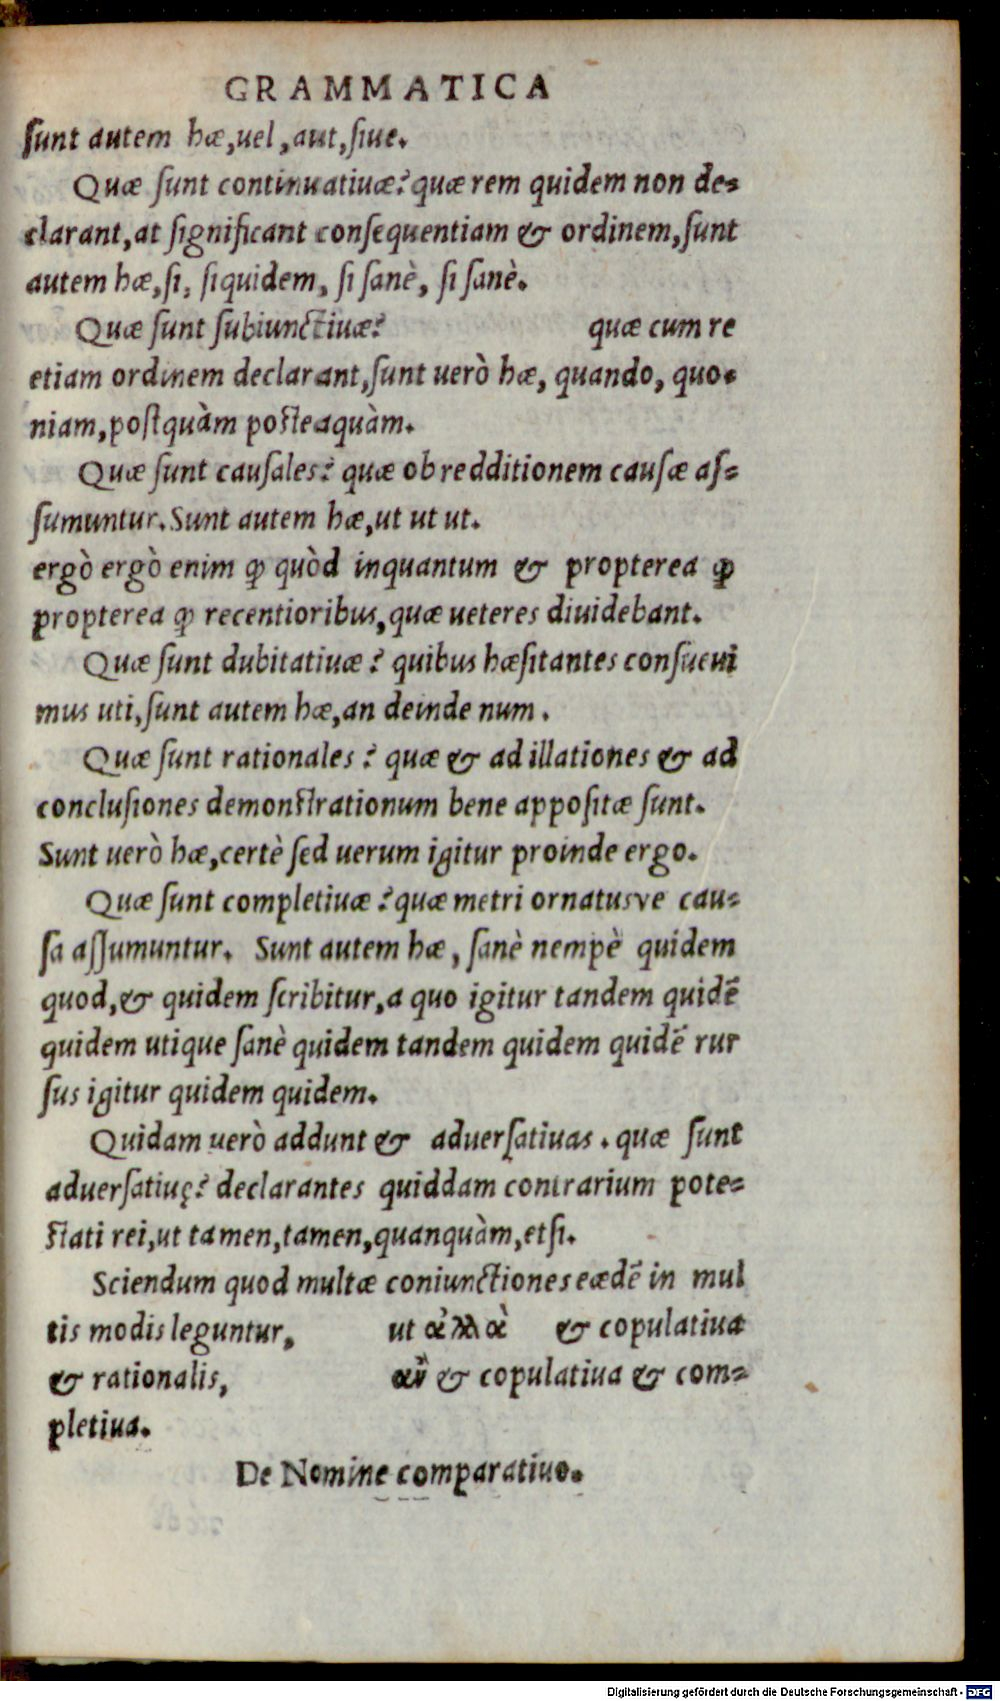 GRAMMATICA
ſunt autem hæ,uel,aut,ſiue.
Quæ ſunt continuatiuæ? quæ rem quidem non de=
clarant,at ſignificant conſequentiam & ordinem,ſunt
autem hæ,ſi, ſiquidem, ſi ſanè, ſi ſanè.
Quæ ſunt ſubiunctiuæ? quæ cum re
etiam ordinem declarant,ſunt uerò hæ, quando, quo=
niam,poſtquàm poſteaquàm.
Quæ ſunt cauſales? quæ ob redditionem cauſæ aſ=
ſumuntur.Sunt autem hæ,ut ut ut.
ergò ergò enim ꝙ quòd inquantum & propterea ꝙ
propterea ꝙ recentioribus,quæ ueteres diuidebant.
Quæ ſunt dubitatiuæ? quibus hæſitantes conſueui
mus uti,ſunt autem hæ,an deinde num.
Quæ ſunt rationales? quæ & ad illationes & ad
concluſiones demonſtrationum bene appoſitæ ſunt.
Sunt uerò hæ,certè ſed uerum igitur proinde ergo.
Quæ ſunt completiuæ? quæ metri ornatusve cau=
ſa aſſumuntur. Sunt autem hæ, ſanè nempè quidem
quod,& quidem ſcribitur,a quo igitur tandem quidē
quidem utique ſanè quidem tandem quidem quidē rur
ſus igitur quidem quidem.
Quidam uerò addunt & aduerſatiuas. quæ ſunt
aduerſatiuę? declarantes quiddam contrarium pote=
ſtati rei,ut tamen,tamen,quanquàm,etſi.
Sciendum quod multæ coniunctiones eædē in mul
tis modis leguntur, ut ἀλλὰ & copulatiua
& rationalis, & copulatiua & com=
pletiua.
De Nomine comparatiuo.
Digitalisierung gefördert durch die Deutsche Forschungsgemeinschaft - DFG